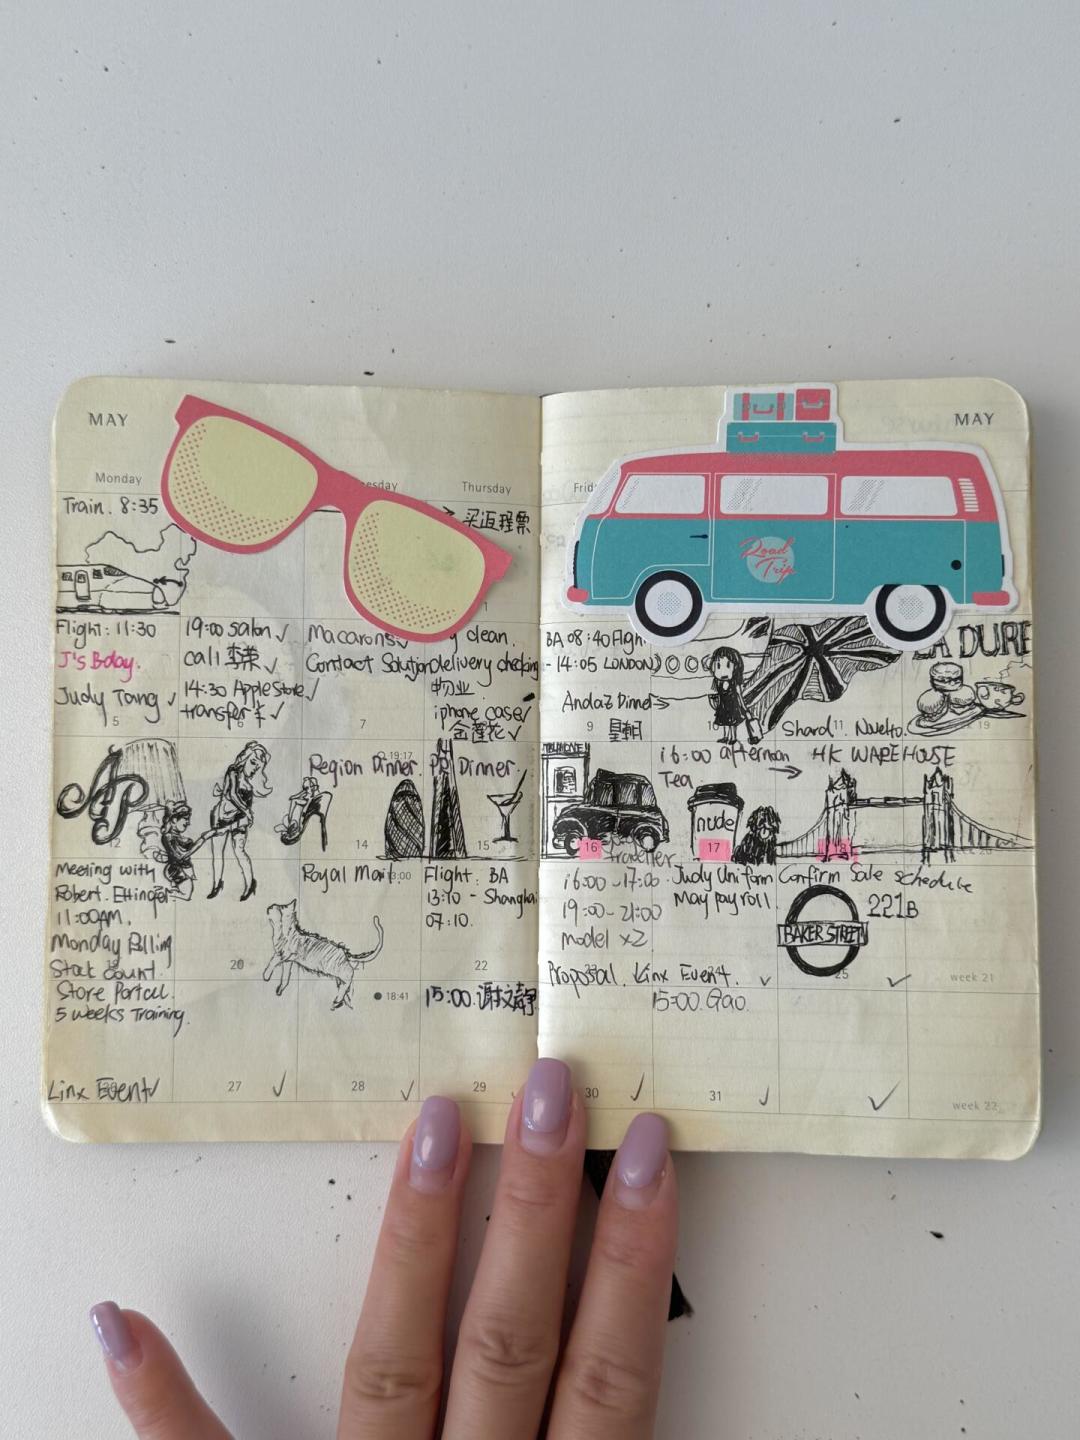 MAY
MAY
Monday
Thursday
Train. 8:35
买返程票
1
Road
Trip
Flight: 11:30
J's Bday.
Judy Tang ✓
5
19:00 salon ✓
call
14:30 Apple Store ✓
transfer
Macarons ✓
Contact Solution
7
y clean.
delivery checking
物业
iphone case ✓
金莲花 ✓
BA 08:40 Flight
- 14:05 LONDON
Andaz Dinner →
9
10
Shard.
11
LADURE
19
AP
12
Region Dinner.
19:17
14
Dinner.
15
16
16:00 afternoon
Tea.
nude
17
→ HK WAREHOUSE
Meeting with
Robert. Ettinger
11:00AM.
Monday Filling
Stock Count.
20
Royal Mail
21
Flight: BA
13:10 - Shanghai
07:10.
22
traveller
16:00-17:00
19:00-21:00
model x2
Judy Uniform
May payroll.
Confirm Sale schedule
221B
BAKER STREET
25
✓
week 21
Store Portal.
5 weeks Training.
Linx Event ✓
27 ✓
18:41
28 ✓
15:00.谢文静
29
Proposal. Linx Event. ✓
30 ✓
15:00. Gao.
31 ✓
✓
week 22